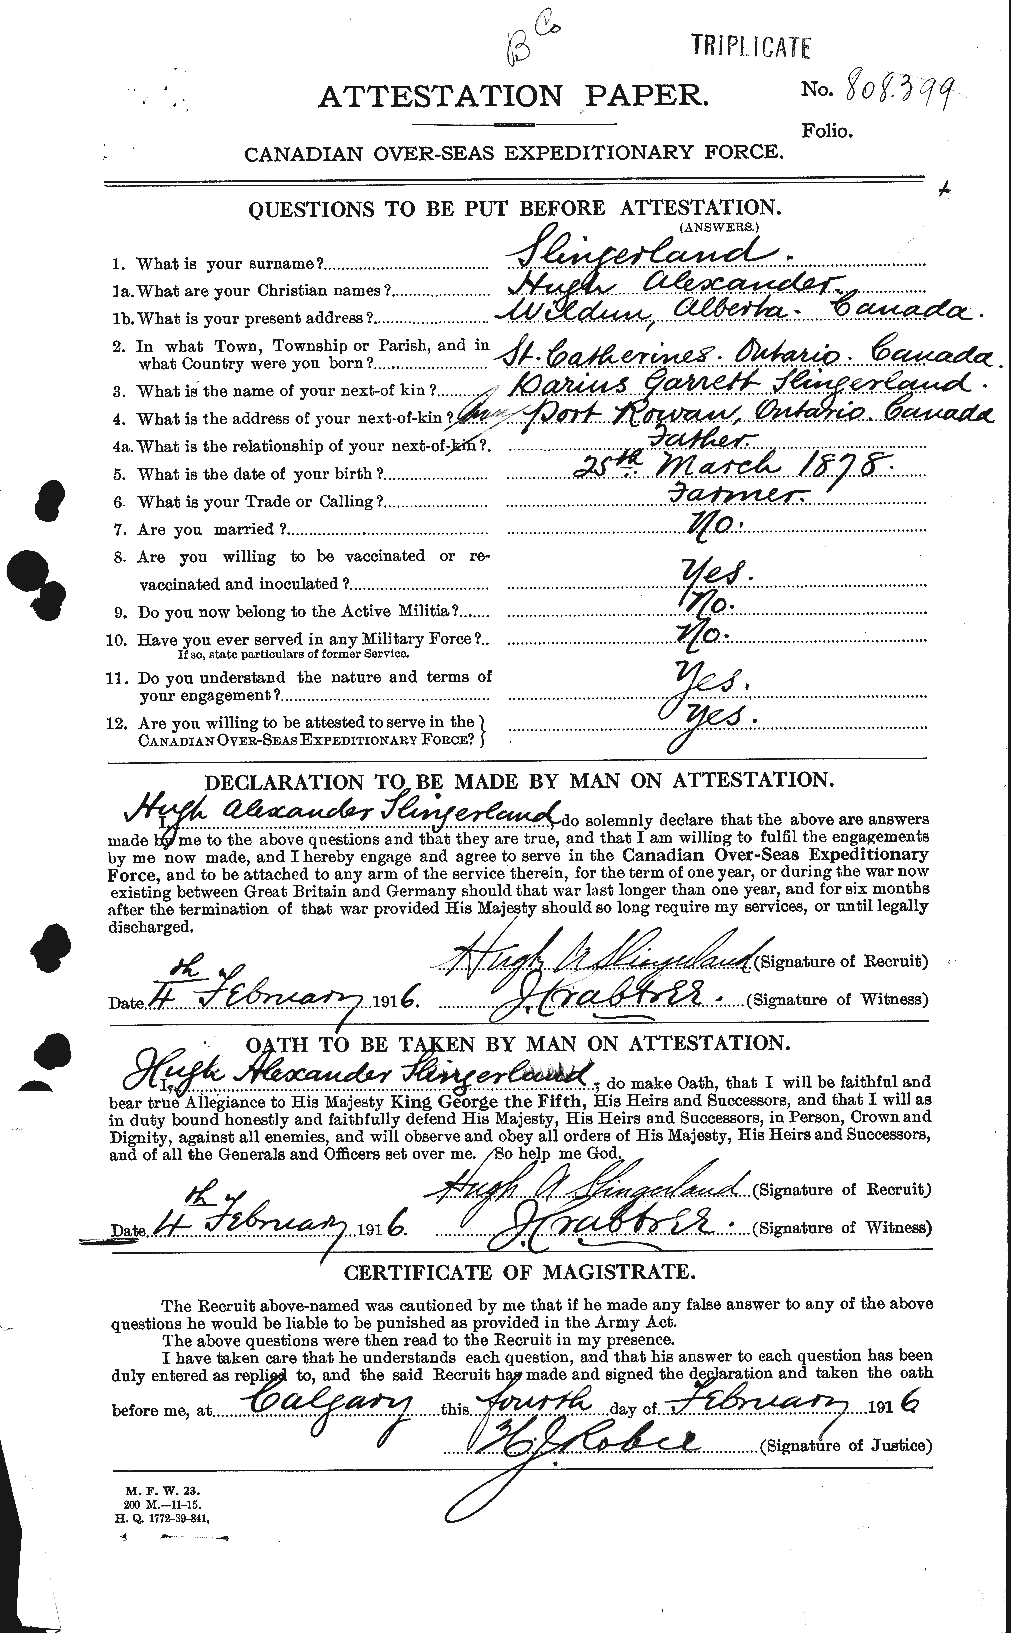 B Co
TRIPLICATE
ATTESTATION PAPER.
No. 808399
Folio.
CANADIAN OVER-SEAS EXPEDITIONARY FORCE.
QUESTIONS TO BE PUT BEFORE ATTESTATION.
(ANSWERS.)
1. What is your surname? Slingerland.
1a. What are your Christian names? Hugh Alexander.
1b. What is your present address? Alberta. Canada.
2. In what Town, Township or Parish, and in
what Country were you born? St. Catherines. Ontario. Canada.
3. What is the name of your next-of kin? Darius Garrett Slingerland.
4. What is the address of your next-of-kin? Port Rowan, Ontario. Canada
4a. What is the relationship of your next-of-kin? Father.
5. What is the date of your birth? 25th March 1878.
6. What is your Trade or Calling? Farmer.
7. Are you married? No.
8. Are you willing to be vaccinated or re-
vaccinated and inoculated? Yes.
9. Do you now belong to the Active Militia? No.
10. Have you ever served in any Military Force? No.
If so, state particulars of former Service.
11. Do you understand the nature and terms of
your engagement? Yes.
12. Are you willing to be attested to serve in the
CANADIAN OVER-SEAS EXPEDITIONARY FORCE? Yes.
DECLARATION TO BE MADE BY MAN ON ATTESTATION.
I, Hugh Alexander Slingerland, do solemnly declare that the above are answers
made by me to the above questions and that they are true, and that I am willing to fulfil the engagements
by me now made, and I hereby engage and agree to serve in the Canadian Over-Seas Expeditionary
Force, and to be attached to any arm of the service therein, for the term of one year, or during the war now
existing between Great Britain and Germany should that war last longer than one year, and for six months
after the termination of that war provided His Majesty should so long require my services, or until legally
discharged.
Hugh A Slingerland (Signature of Recruit)
Date 4th of February 1916. J. Crabtree. (Signature of Witness)
OATH TO BE TAKEN BY MAN ON ATTESTATION.
I, Hugh Alexander Slingerland, do make Oath, that I will be faithful and
bear true Allegiance to His Majesty King George the Fifth, His Heirs and Successors, and that I will as
in duty bound honestly and faithfully defend His Majesty, His Heirs and Successors, in Person, Crown and
Dignity, against all enemies, and will observe and obey all orders of His Majesty, His Heirs and Successors,
and of all the Generals and Officers set over me. So help me God.
Hugh A Slingerland (Signature of Recruit)
Date 4th of February 1916. J. Crabtree. (Signature of Witness)
CERTIFICATE OF MAGISTRATE.
The Recruit above-named was cautioned by me that if he made any false answer to any of the above
questions he would be liable to be punished as provided in the Army Act.
The above questions were then read to the Recruit in my presence.
I have taken care that he understands each question, and that his answer to each question has been
duly entered as replied to, and the said Recruit has made and signed the declaration and taken the oath
before me, at Calgary this fourth day of February 1916
H. J. Robie (Signature of Justice)
M. F. W. 23.
200 M.—11-15.
H. Q. 1772-39-841.